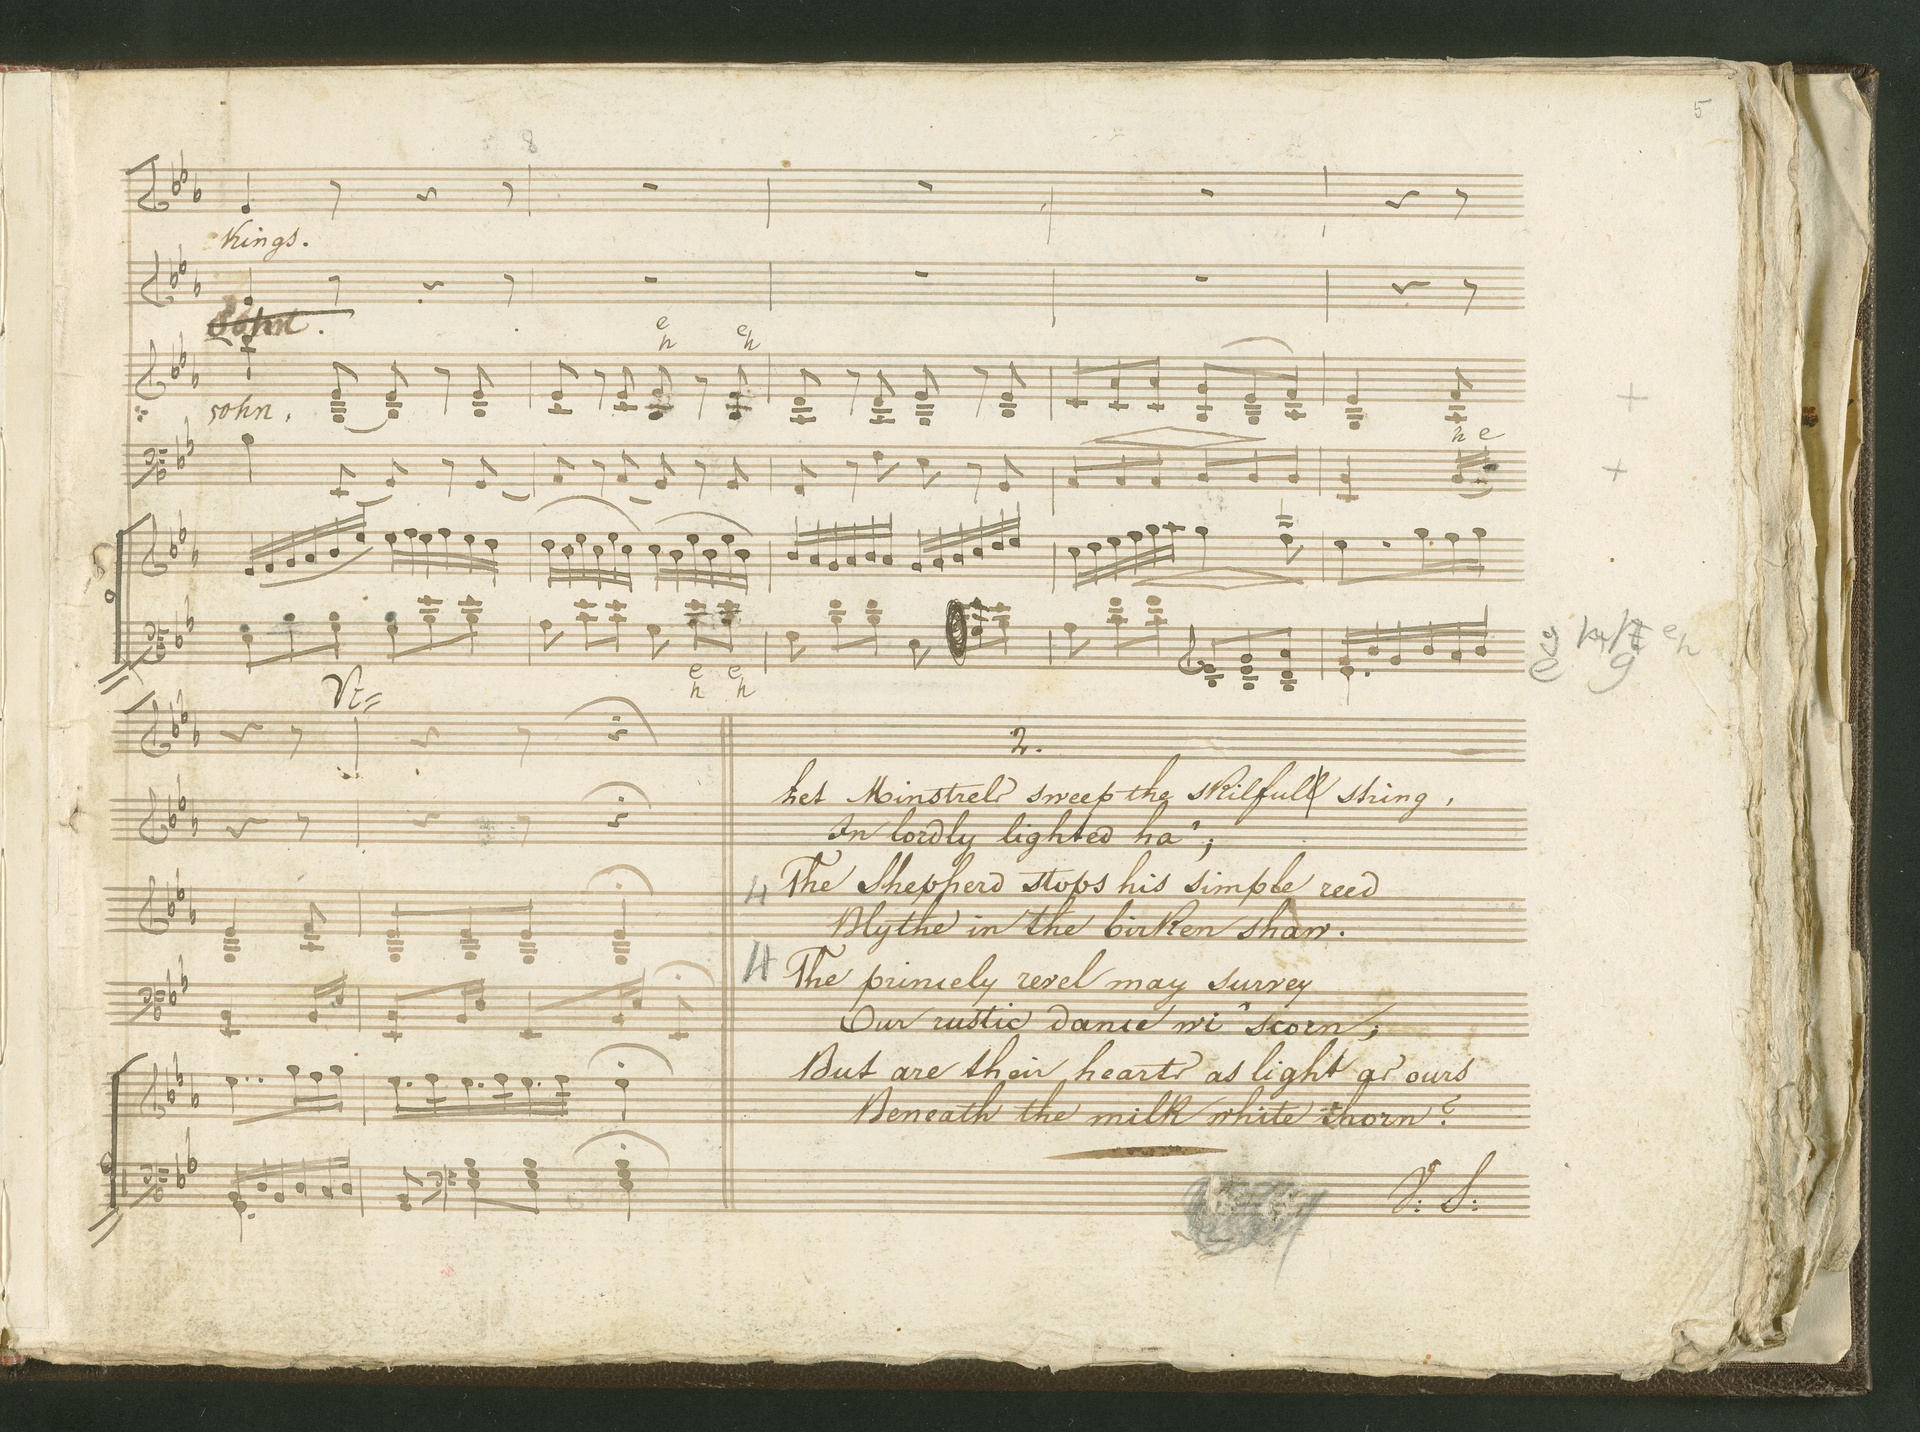 5
8
Kings.
John.
e e
h h
sohn.
h e
e e
h h
Vt=
2.
Let Minstrels sweep the skilfull string,
In lordly lighted ha';
The Shepherd stops his simple reed
Blythe in the birken shaw.
The princely revel may survey
Our rustic dance wi' scorn;
But are their hearts as light as ours
Beneath the milk white thorn?
V: S: